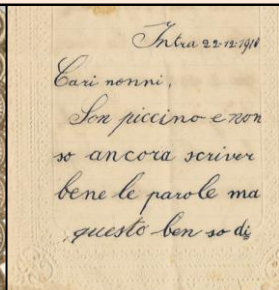 Intra 22-12-1910
Cari nonni,
Son piccino e non
so ancora scriver
bene le parole ma
questo ben so di